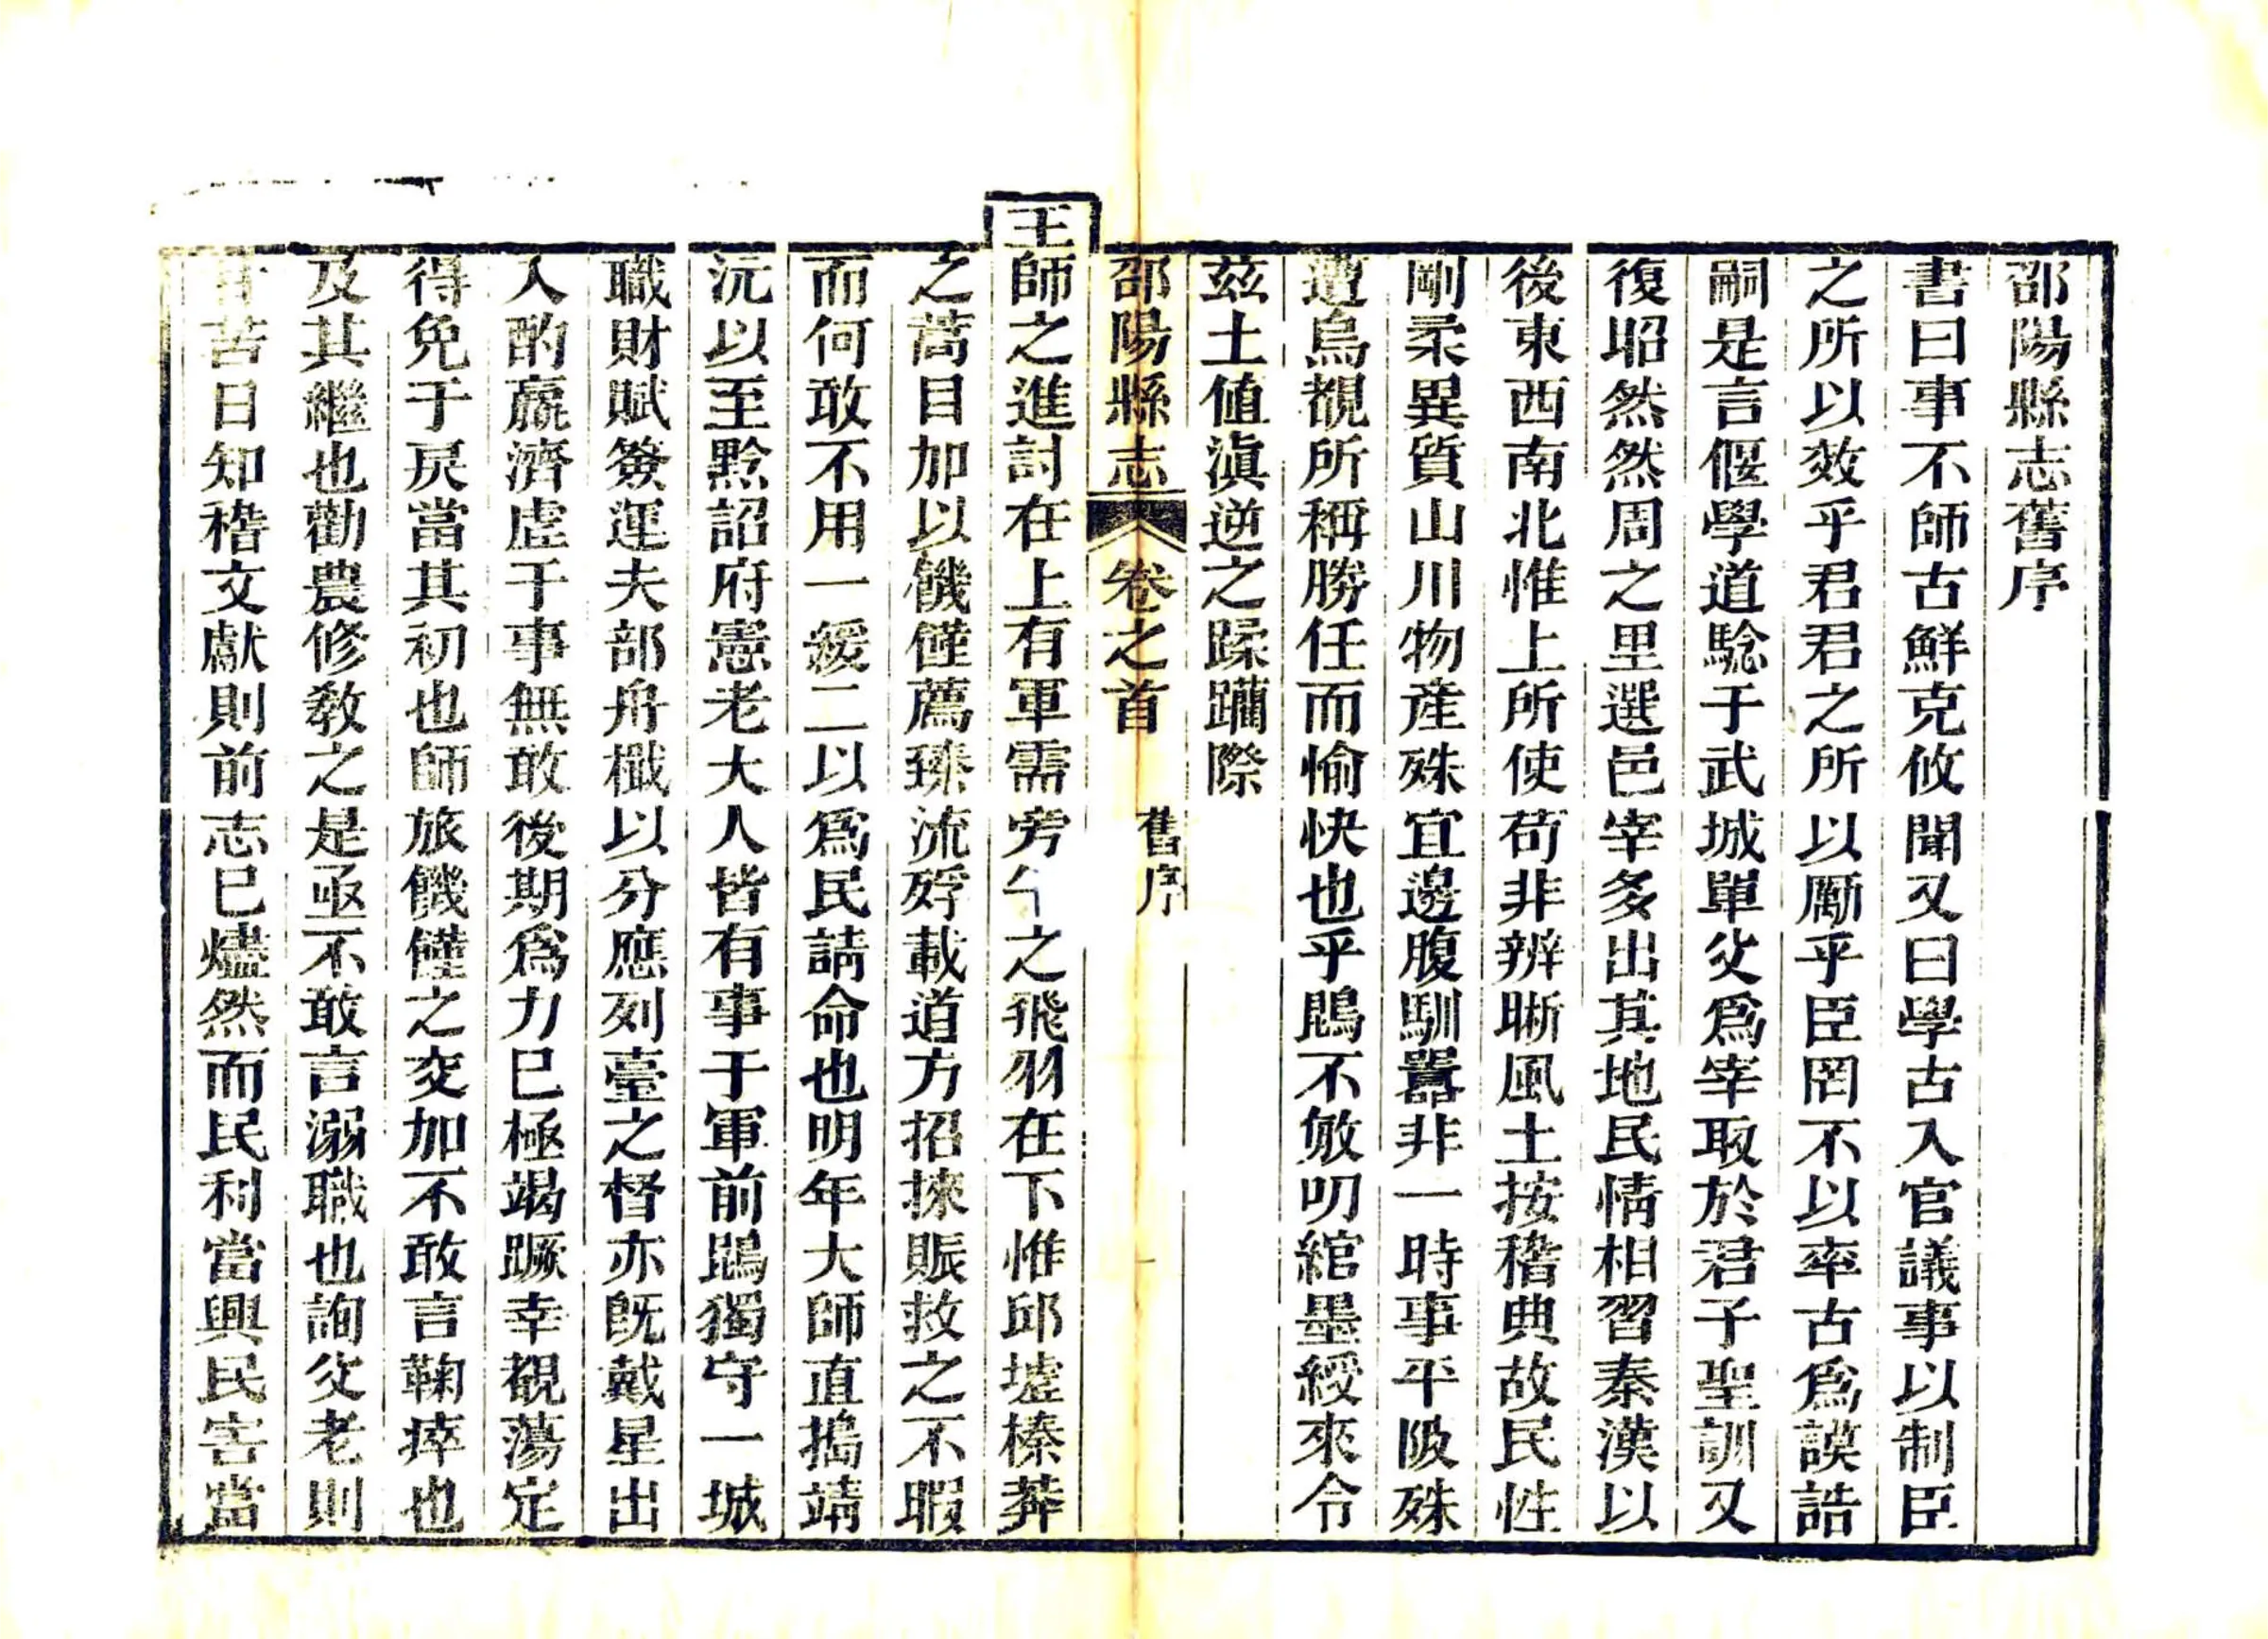 邵陽縣志舊序
書曰事不師古鮮克攸聞又曰學古入官議事以制臣
之所以效乎君君之所以勵乎臣罔不以率古爲謨誥
嗣是言偃學道騐于武城單父爲宰取於君子聖訓又
復昭然然周之里選邑宰多出其地民情相習秦漢以
後東西南北惟上所使苟非辨晰風土按稽典故民性
剛柔異質山川物産殊宜邊腹馴囂非一時事平陂殊
遭烏覩所稱勝任而愉快也乎鵾不敏叨綰墨綬來令
兹土値滇逆之蹂躪際
邵陽縣志 卷之首 舊序 一
王師之進討在上有軍需旁午之飛羽在下惟邱墟榛莽
之蒿目加以饑饉薦臻流殍載道方招揀賑救之不暇
而何敢不用一緩二以爲民請命也明年大師直搗靖
沅以至黔詔府憲老大人皆有事于軍前鵾獨守一城
職財賦簽運夫部舟檝以分應列臺之督亦旣戴星出
入酌羸濟虛干事無敢後期爲力巳極竭蹶幸覩蕩定
得免于戾當其初也師旅饑饉之交加不敢言鞠瘁也
及其繼也勸農修敎之是亟不敢言溺職也詢父老則
苦日知稽文獻則前志巳燼然而民利當興民害當